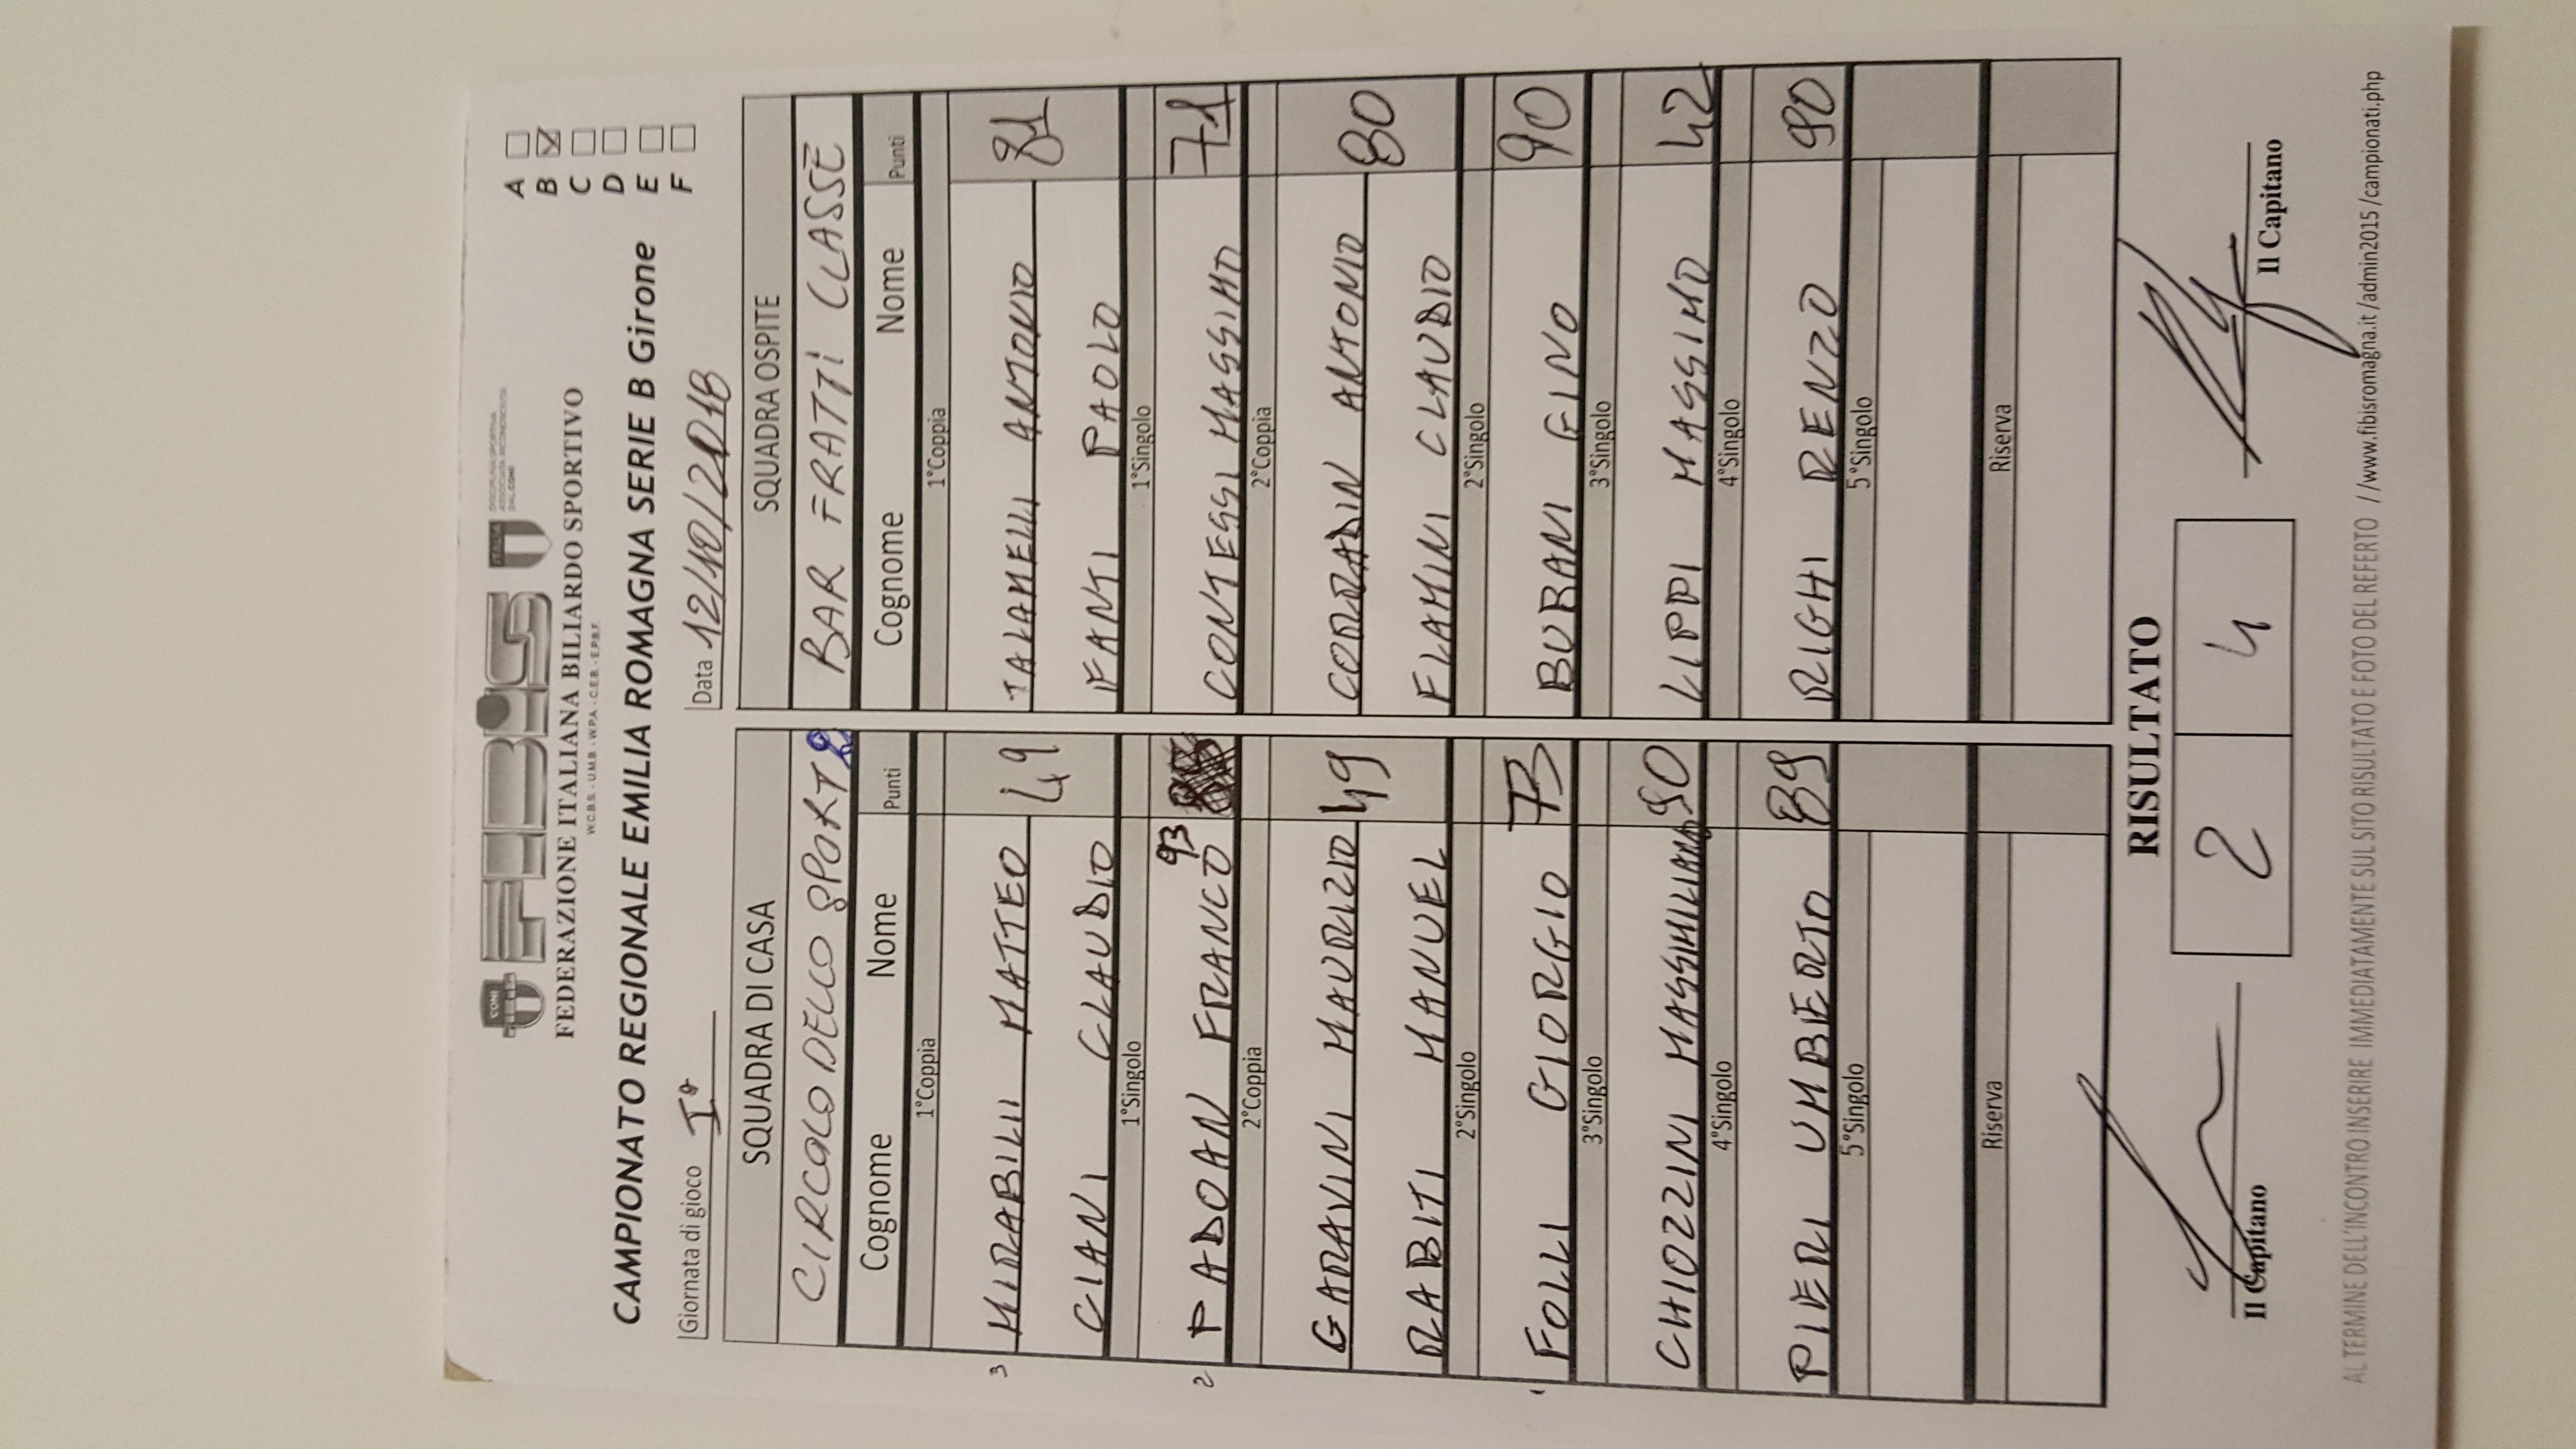 CONI
FIBIS
ITALIA
DISCIPLINA SPORTIVA
ASSOCIATA RICONOSCIUTA
DAL CONI
FEDERAZIONE ITALIANA BILIARDO SPORTIVO
W.C.B.S. - U.M.B. - W.P.A. - C.E.B. - E.P.B.F.
CAMPIONATO REGIONALE EMILIA ROMAGNA SERIE B Girone
A
B
C
D
E
F
Giornata di gioco I°
Data 12/10/2018
SQUADRA DI CASA
CIRCOLO DELLO SPORT
Cognome Nome Punti
1°Coppia
3 MIRABILII MATTEO 49
CIANI CLAUDIO
1°Singolo
2 PADOAN FRANCO 93
2°Coppia
GARAVINI MAURIZIO 49
RABITI MANUEL
2°Singolo
1 FOLLI GIORGIO 73
3°Singolo
CHIOZZINI MASSIMILIANO 90
4°Singolo
PIERI UMBERTO 89
5°Singolo
Riserva
SQUADRA OSPITE
BAR FRATTI CLASSE
Cognome Nome Punti
1°Coppia
TALAMELLI ANTONIO 81
FANTI PAOLO
1°Singolo
CONTESSI MASSIMO 71
2°Coppia
CORRADIN ANTONIO 80
FLAMINI CLAUDIO
2°Singolo
BURANI GINO 90
3°Singolo
LIPPI MASSIMO 42
4°Singolo
RIGHI RENZO 90
5°Singolo
Riserva
RISULTATO
2 4
Il Capitano
Il Capitano
AL TERMINE DELL'INCONTRO INSERIRE IMMEDIATAMENTE SUL SITO RISULTATO E FOTO DEL REFERTO //www.fibisromagna.it/admin2015/campionati.php